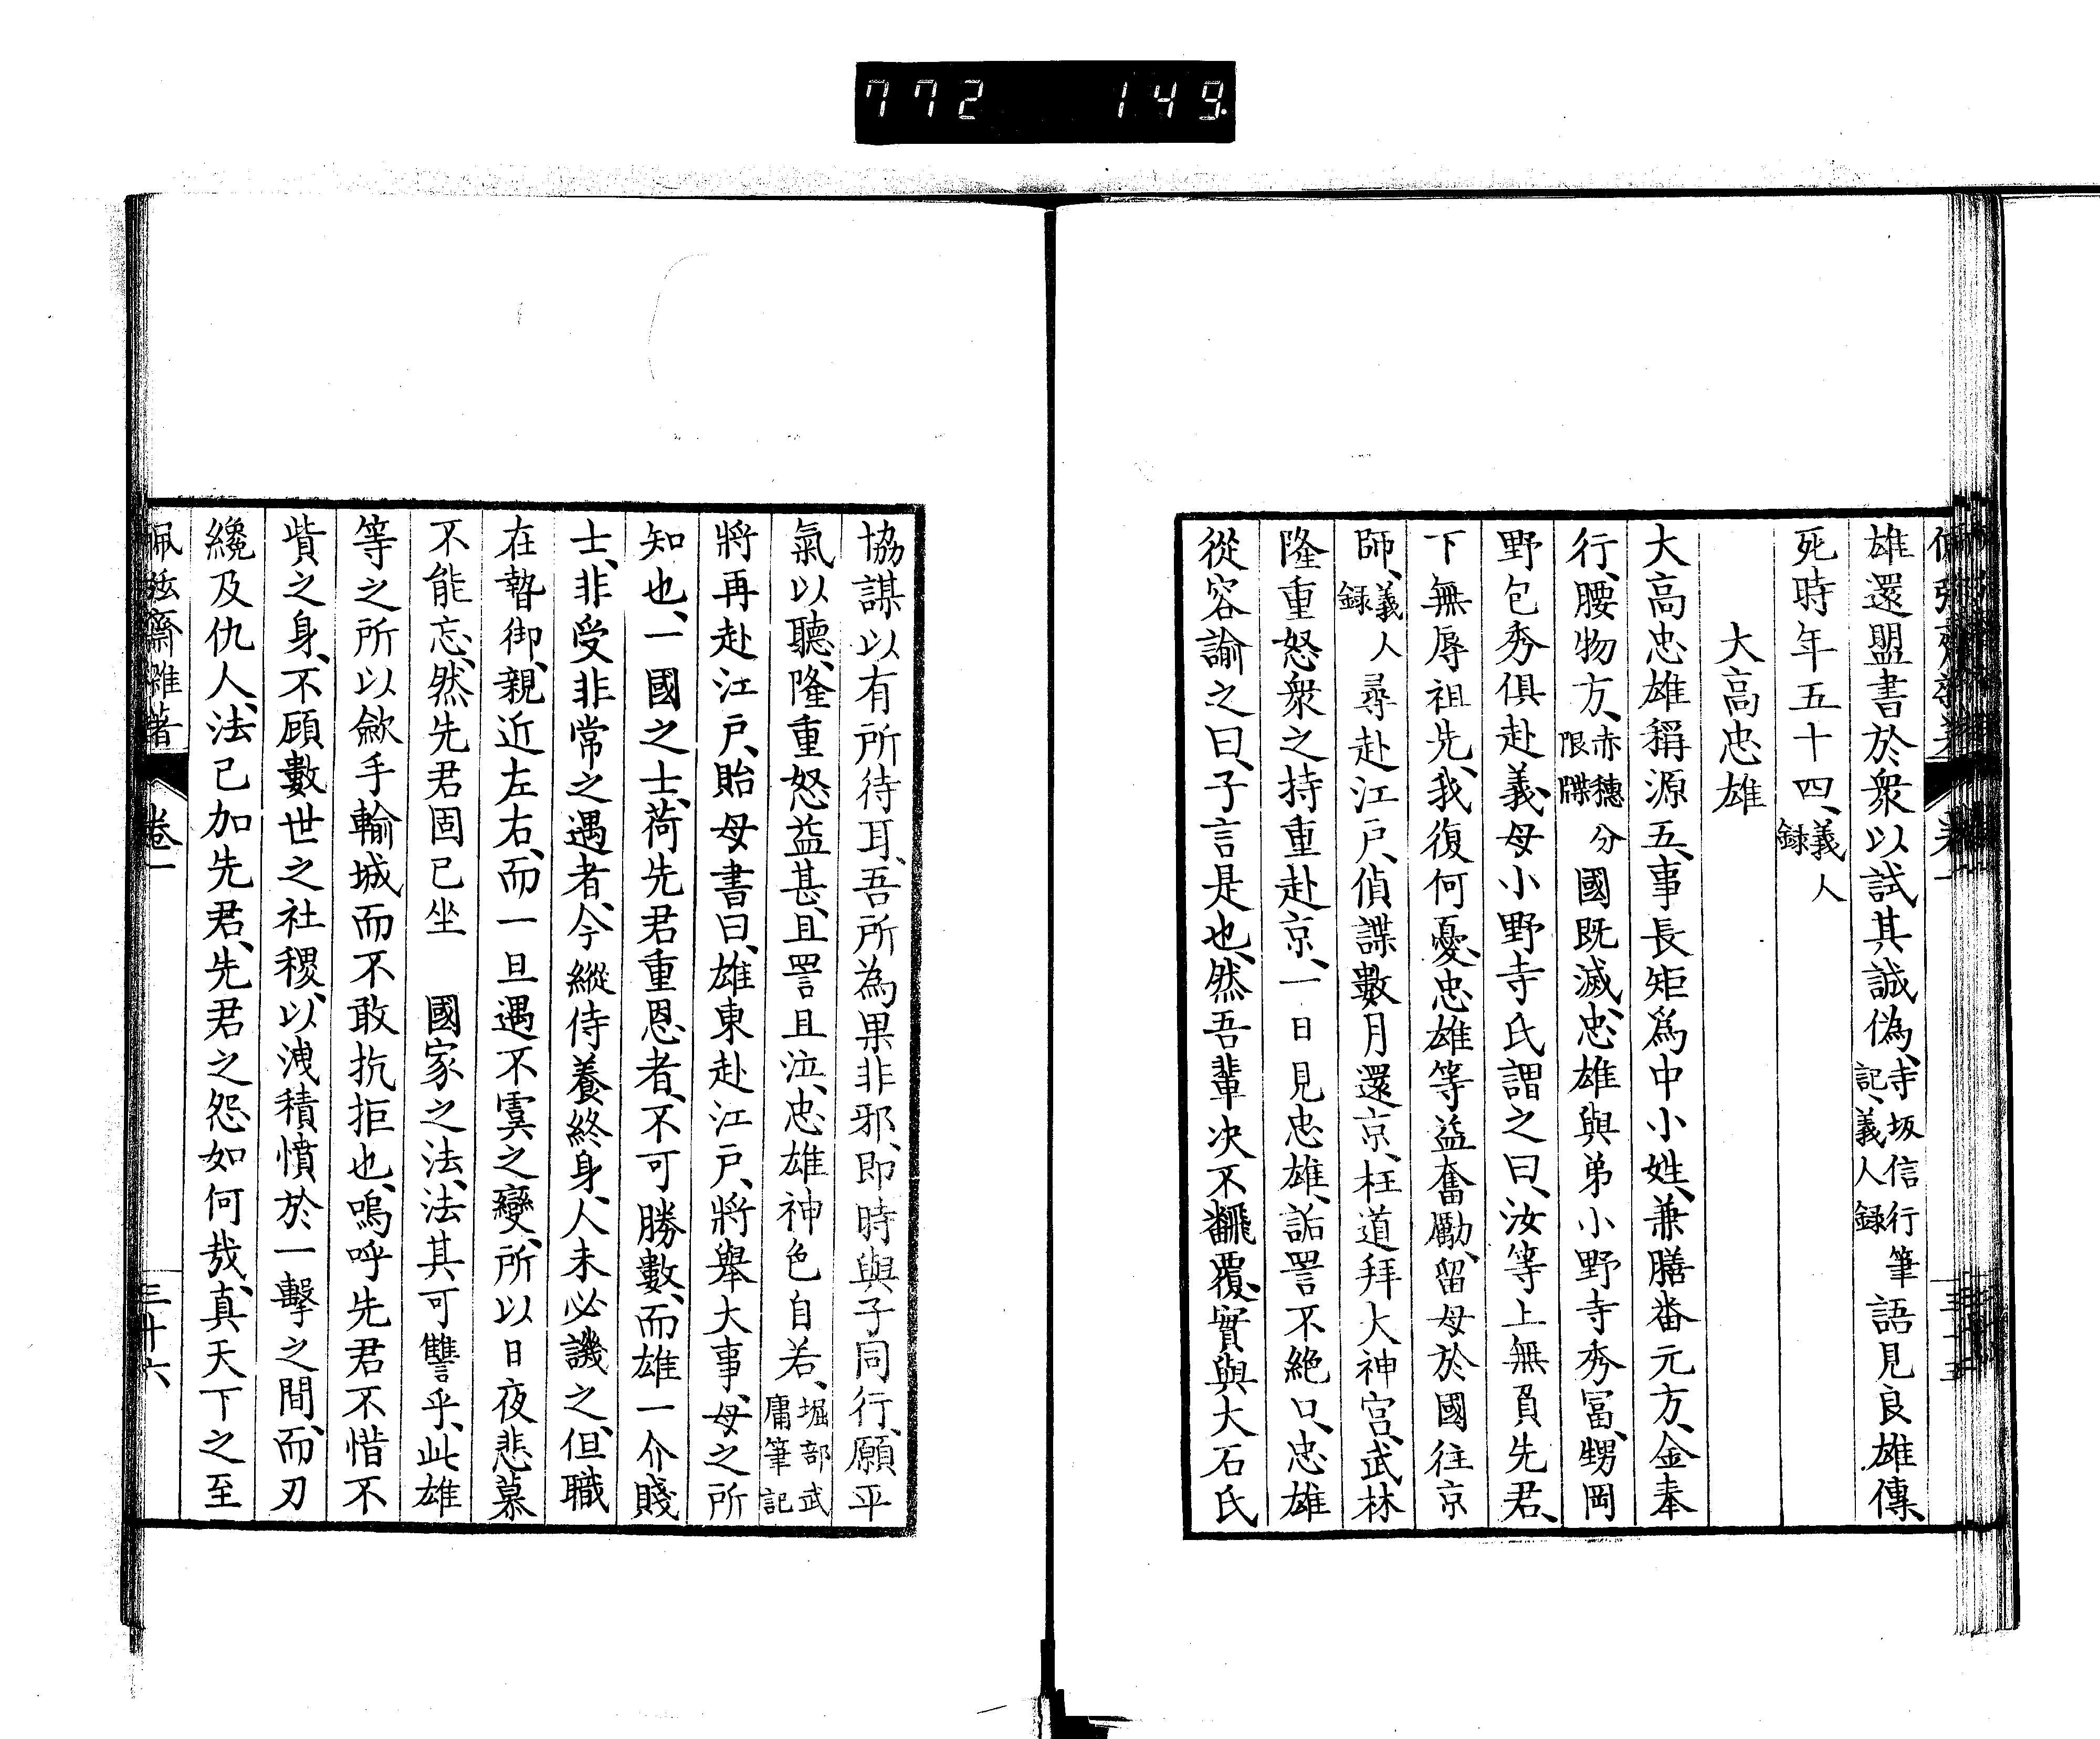 772 149
雄還盟書於衆以試其誠偽、寺坂信行筆記、義人録語見良雄傳、
死時年五十四、義人録
大高忠雄
大高忠雄稱源五、事長矩爲中小姓、兼膳番元方、金奉
行、腰物方、赤穗分限牒國既滅、忠雄與弟小野寺秀富、甥岡
野包秀俱赴義、母小野寺氏謂之曰、汝等上無負先君、
下無辱祖先、我復何憂、忠雄等益奮勵、留母於國往京
師、義人録尋赴江戸、偵諜數月還京、枉道拜大神宮、武林
隆重怒衆之持重赴京、一日見忠雄、詬詈不絶口、忠雄
從容諭之曰、子言是也、然吾輩决不飜覆、實與大石氏
協謀以有所待耳、吾所為果非邪、即時與子同行、願平
氣以聽、隆重怒益甚、且詈且泣、忠雄神色自若、堀部武庸筆記
將再赴江戸、貽母書曰、雄東赴江戸、將舉大事、母之所
知也、一國之士、荷先君重恩者、不可勝數、而雄一介賤
士、非受非常之遇者、今縱侍養終身、人未必譏之、但職
在暬御、親近左右、而一旦遇不寞之變、所以日夜悲慕
不能忘、然先君固已坐　國家之法、法其可讐乎、此雄
等之所以斂手輸城而不敢抗拒也、嗚呼先君不惜不
貲之身、不顧數世之社稷、以洩積憤於一擊之間、而刃
纔及仇人、法已加先君、先君之怨如何哉、真天下之至
佩弦齋雜著 卷一 三十六